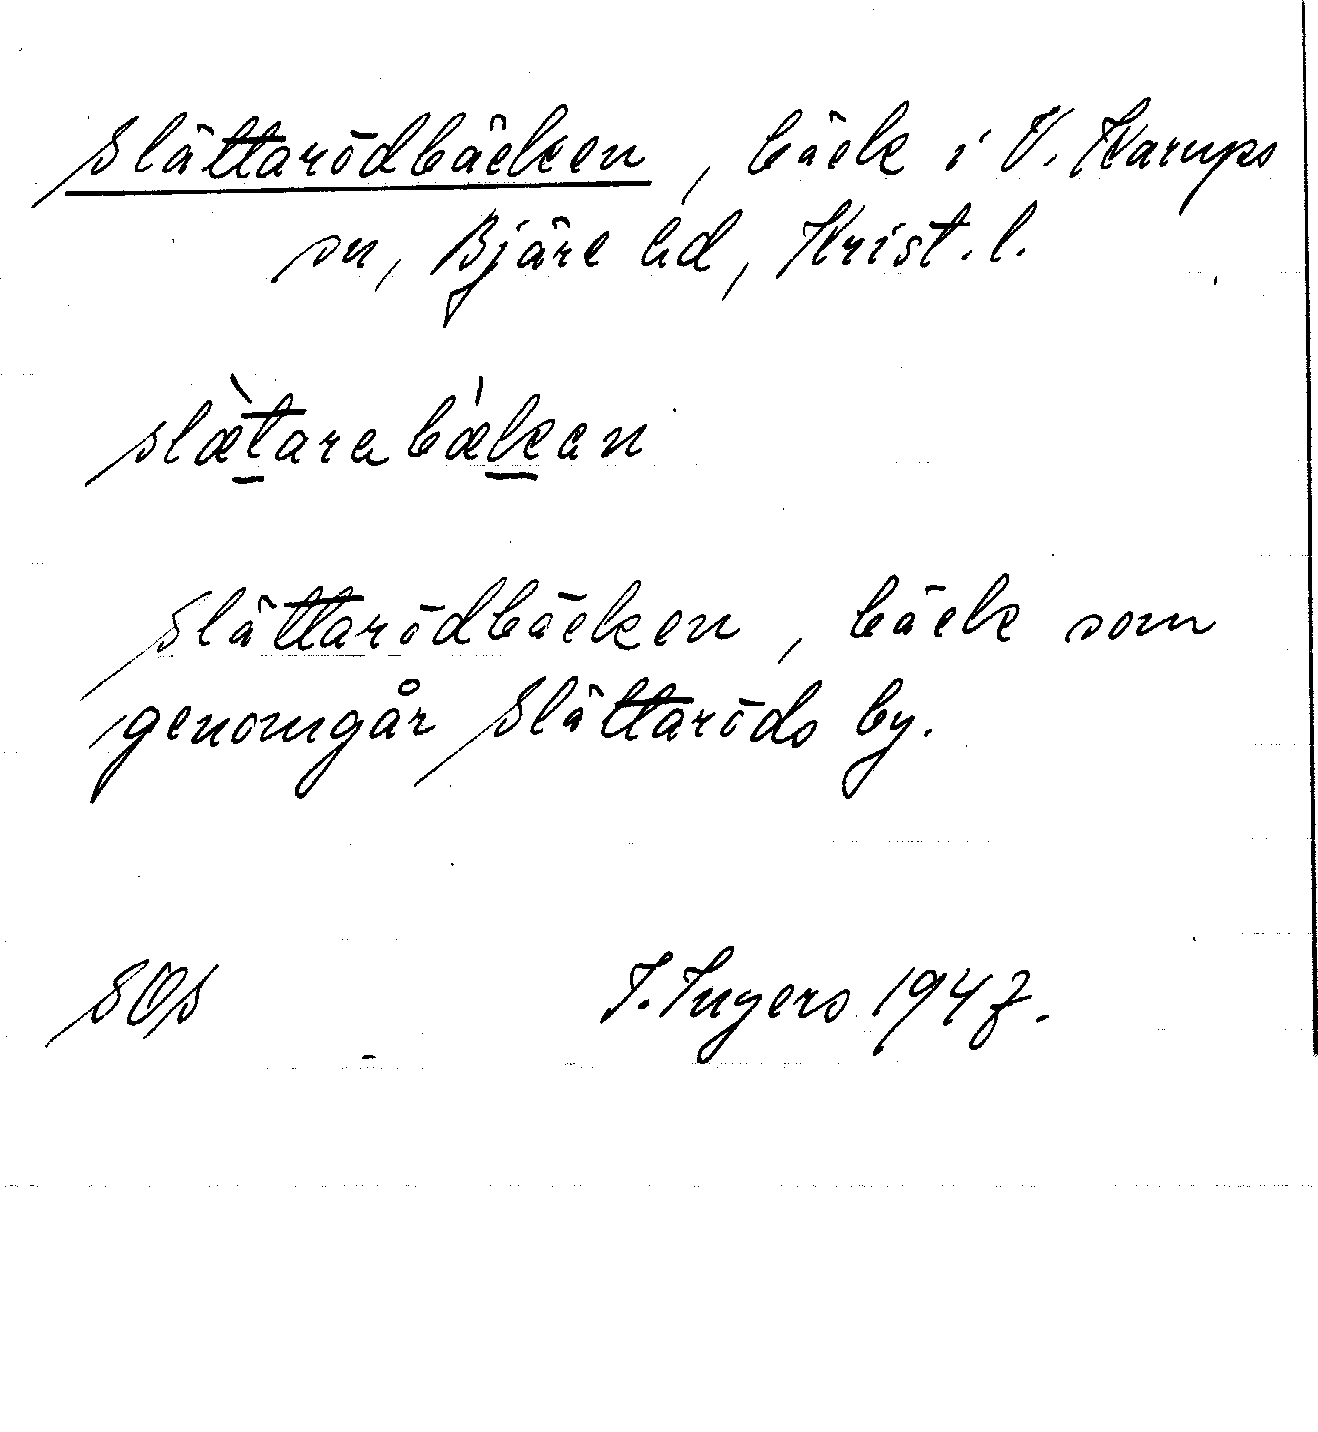 Slättarödbäcken, bäck i V. Karups
sn, Bjäre hd, Krist. l.
slæ̀tarabækan
Slättarödbäcken, bäck som
genomgår Slättaröds by.
SOS I. Ingers 1947.